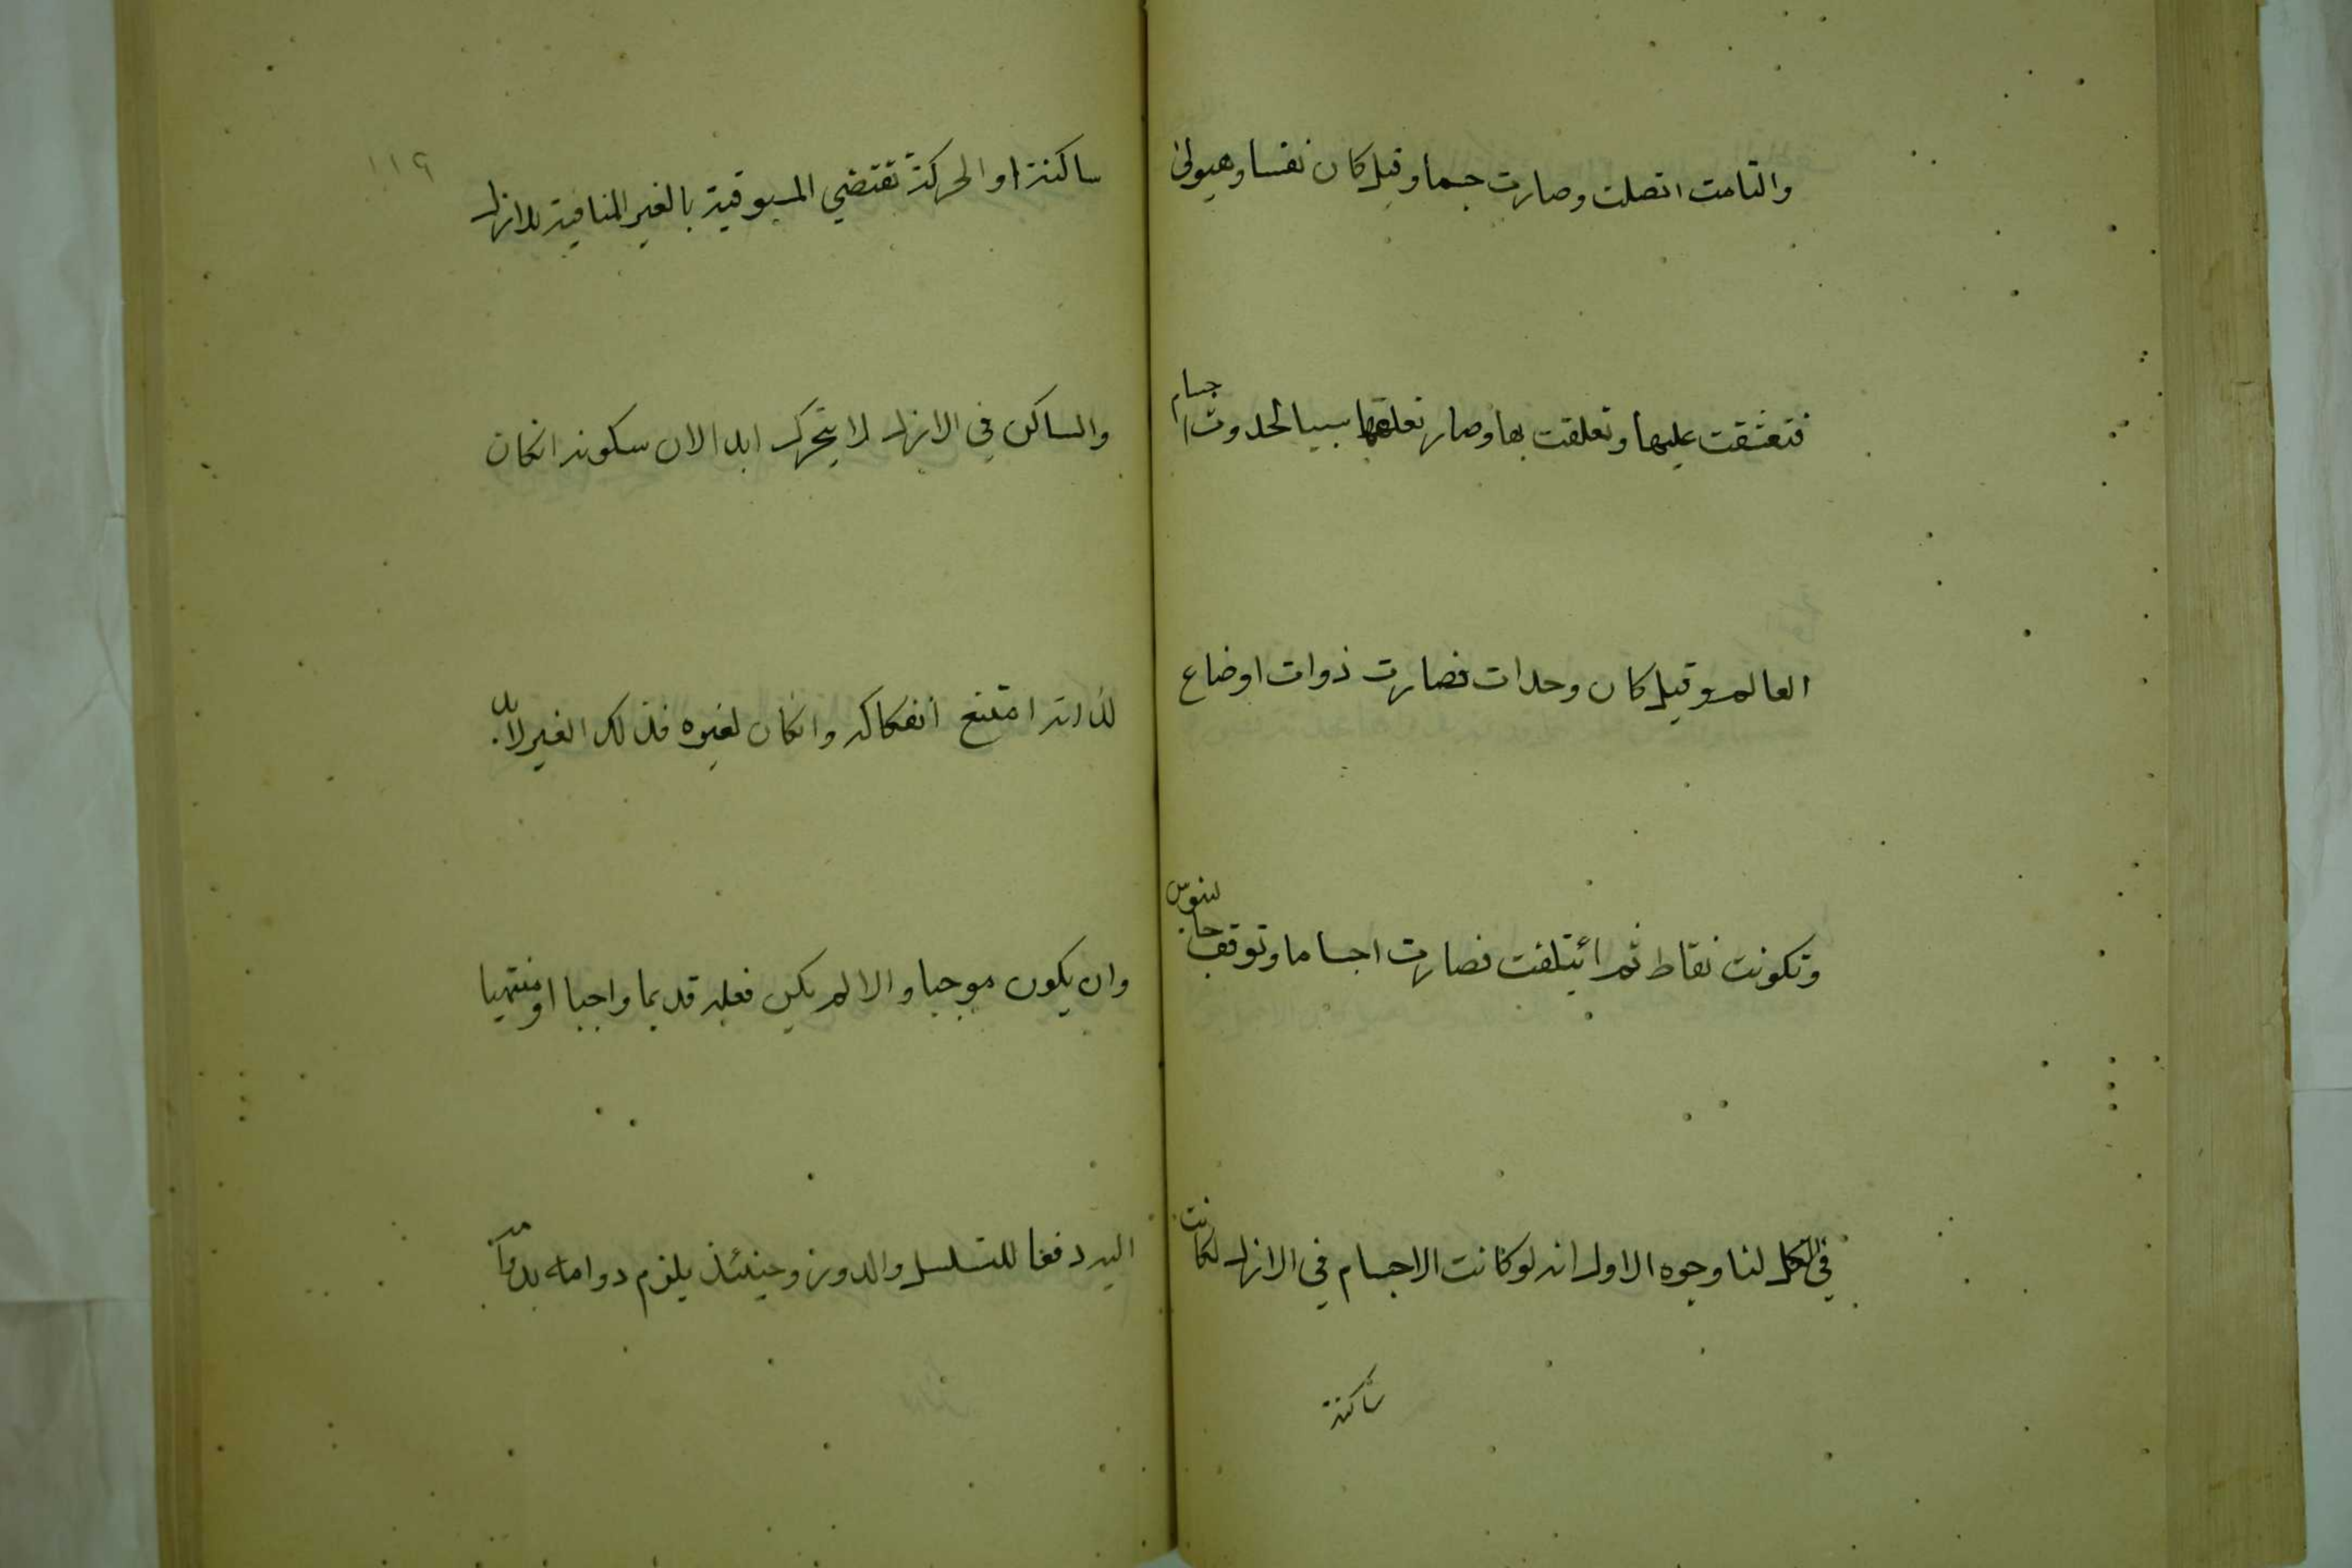 والتامت اتصلت وصارت جسما وقيل كان نفسا وهيولى
فتعشقت عليها وتعلقت بها وصار تعلقها سببا لحدوث اجسام
العالم وقيل كان وحدات فصارت ذوات اوضاع
وتكونت نقاط ثم ائيتلفت فصارت اجساما وتوقف جالينوس
في الكل لنا وجوه الاول انه لو كانت الاجسام في الازل لكانت
ساكنة
١١٩
ساكنة او الحركة تقتضي المسبوقية بالغير المنافية للازل
والساكن في الازل لا يتحرك ابدا لان سكونه انكان
لذاته امتنع انفكاكه وانكان لغيره فذلك الغير لابد
وان يكون موجبا والا لم يكن فعله قديما واجبا او منتهيا
اليه دفعا للتسلسل والدور وحينئذ يلزم دوامه بدوامه